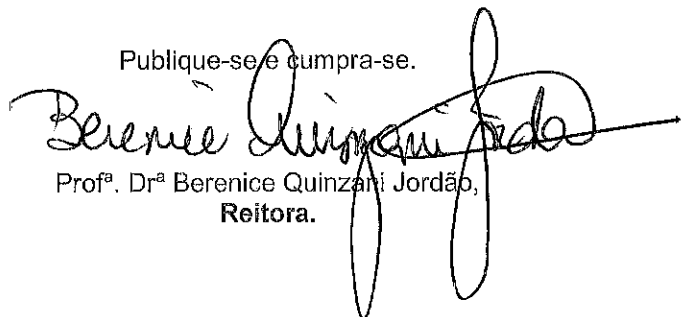 Publique-se e cumpra-se.
Berenice Quinzani Jordão
Profª. Drª Berenice Quinzani Jordão,
Reitora.